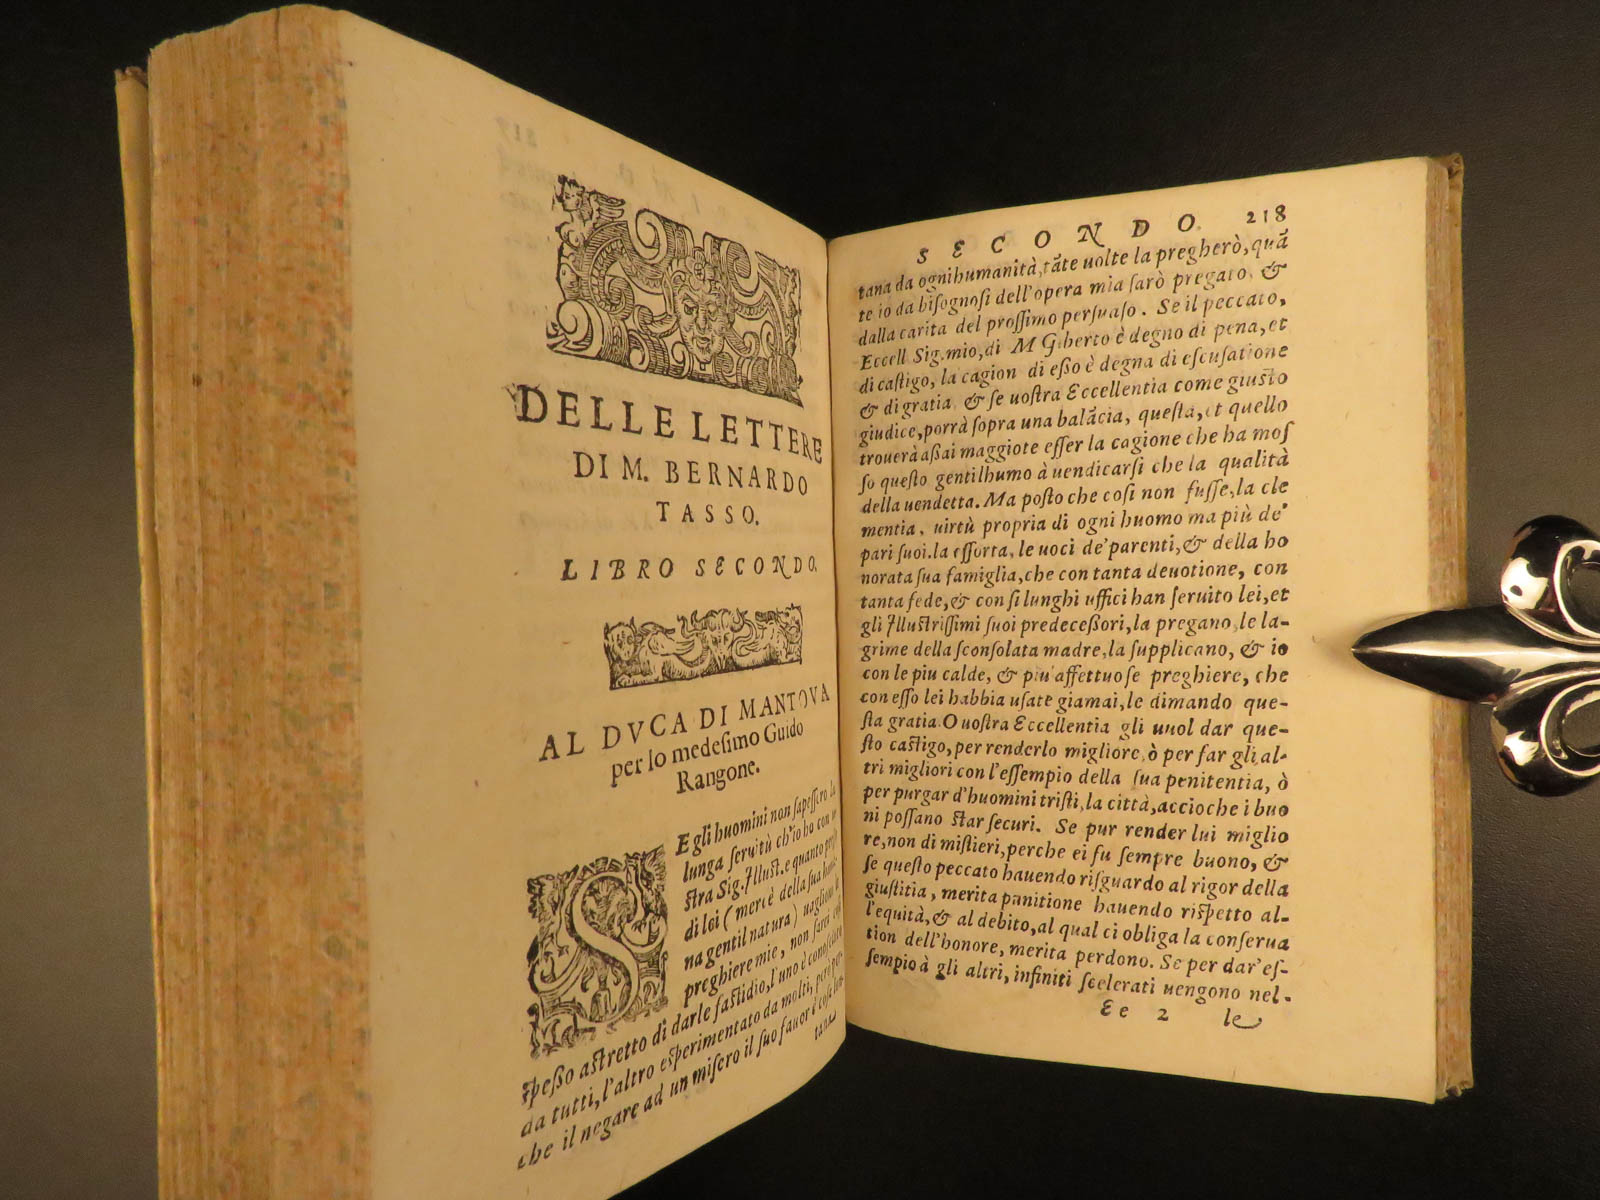 DELLE LETTERE
DI M. BERNARDO
TASSO.
LIBRO SECONDO.
AL DVCA DI MANTOVA
per lo medesimo Guido
Rangone.
SE gli huomini non sapessero la
lunga seruitù ch'io ho con uo
stra Sig. Illust. e quanto presso
di lei (mercè della sua huma-
na gentil natura) uagliono le
preghiere mie, non sarei cosi
spesso astretto di darle fastidio, l'uno è conosciuto
da tutti, l'altro esperimentato da molti, pero per-
che il negare ad un misero il suo fauor è cosa lon-
tana
SECONDO. 218
tana da ogni humanità, tãte uolte la pregherò, quã
te io da bisognosi dell'opera mia sarò pregato, &
dalla carita del prossimo persuaso. Se il peccato,
Eccell Sig. mio, di M Giberto è degno di pena, et
di castigo, la cagion di esso è degna di escusatione
& di gratia, & se uostra Eccellentia come giusto
giudice, porrà sopra una balãcia, questa, et quello
trouerà assai maggiote esser la cagione che ha mos
so questo gentilhumo à uendicarsi che la qualità
della uendetta. Ma posto che cosi non fusse, la cle
mentia, uirtù propria di ogni huomo ma più de'
pari suoi. la essorta, le uoci de' parenti, & della ho
norata sua famiglia, che con tanta deuotione, con
tanta fede, & con si lunghi uffici han seruito lei, et
gli Illustrissimi suoi predecessori, la pregano, le la-
grime della sconsolata madre, la supplicano, & io
con le piu calde, & più affettuose preghiere, che
con esso lei habbia usate giamai, le dimando que-
sta gratia. O uostra Eccellentia gli uuol dar que-
sto castigo, per renderlo migliore, ò per far gli al-
tri migliori con l'essempio della sua penitentia, ò
per purgar d'huomini tristi, la città, accioche i buo
ni possano star securi. Se pur render lui miglio
re, non di mistieri, perche ei fu sempre buono, &
se questo peccato hauendo risguardo al rigor della
giustitia, merita panitione hauendo rispetto al-
l'equità, & al debito, al qual ci obliga la conserua
tion dell'honore, merita perdono. Se per dar'es-
sempio à gli altri, infiniti scelerati uengono nel-
Ee 2 le